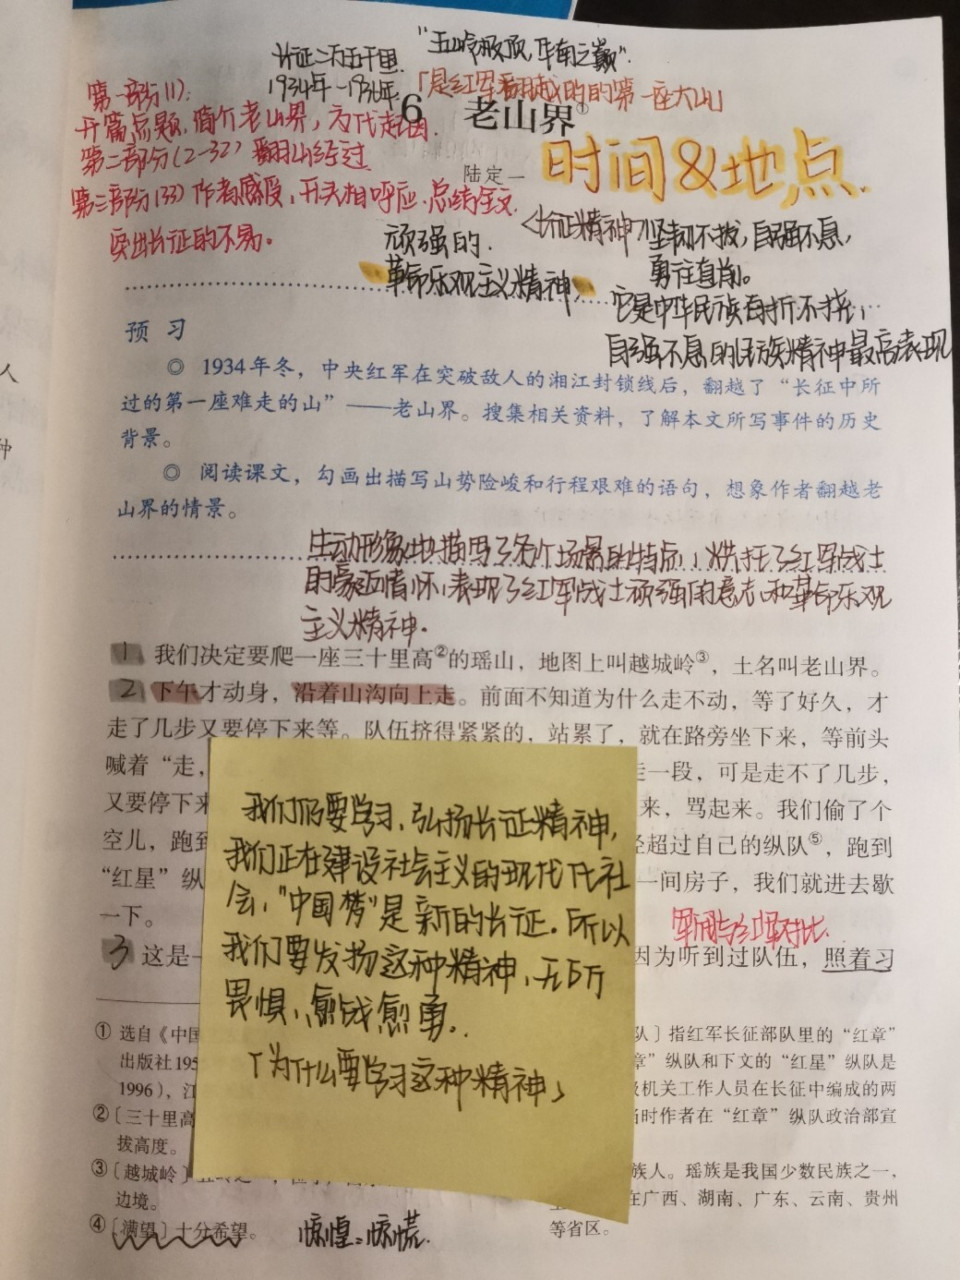 长征二万五千里
1934年-1936年
“五岭极顶，华南之巅”
「是红军翻越的的第一座大山」
第一部分(1):
开篇点题，简介老山界，交代起因.
第二部分(2-32) 翻山经过
第三部分(33) 作者感受，开头相呼应.总结全文.
突出长征的不易。
6 老山界①
陆定一
时间&地点.
顽强的.
革命乐观主义精神
<长征精神>坚韧不拔，自强不息，
勇往直前。
它是中华民族百折不挠，
自强不息的民族精神最高表现
预 习
◎ 1934年冬，中央红军在突破敌人的湘江封锁线后，翻越了“长征中所
过的第一座难走的山”——老山界。搜集相关资料，了解本文所写事件的历史
背景。
◎ 阅读课文，勾画出描写山势险峻和行程艰难的语句，想象作者翻越老
山界的情景。
生动形象地描写了各个场景的特点，烘托了红军战士
的豪迈情怀，表现了红军战士顽强的意志和革命乐观
主义精神.
1 我们决定要爬一座三十里高②的瑶山，地图上叫越城岭③，土名叫老山界。
2 下午才动身，沿着山沟向上走。前面不知道为什么走不动，等了好久，才
走了几步又要停下来等。队伍挤得紧紧的，站累了，就在路旁坐下来，等前头
喊着“走， 走一段，可是走不了几步，
又要停下来 来，骂起来。我们偷了个
空儿，跑到 超过自己的纵队⑤，跑到
“红星”纵 一间房子，我们就进去歇
一下。
军阀与红军对比.
3 这是一 因为听到过队伍，照着习
我们仍要学习、弘扬长征精神，
我们正在建设社会主义的现代代社
会，“中国梦”是新的长征.所以
我们要发扬这种精神，无所
畏惧，愈战愈勇.
「为什么要学习这种精神」
① 选自《中国
出版社195
1996），江
②〔三十里高
拔高度。
③〔越城岭〕
边境。
④〔满望〕十分希望。
惊惶=惊慌.
队〕指红军长征部队里的“红章”
章”纵队和下文的“红星”纵队是
机关工作人员在长征中编成的两
当时作者在“红章”纵队政治部宣
族人。瑶族是我国少数民族之一，
在广西、湖南、广东、云南、贵州
等省区。
人
种